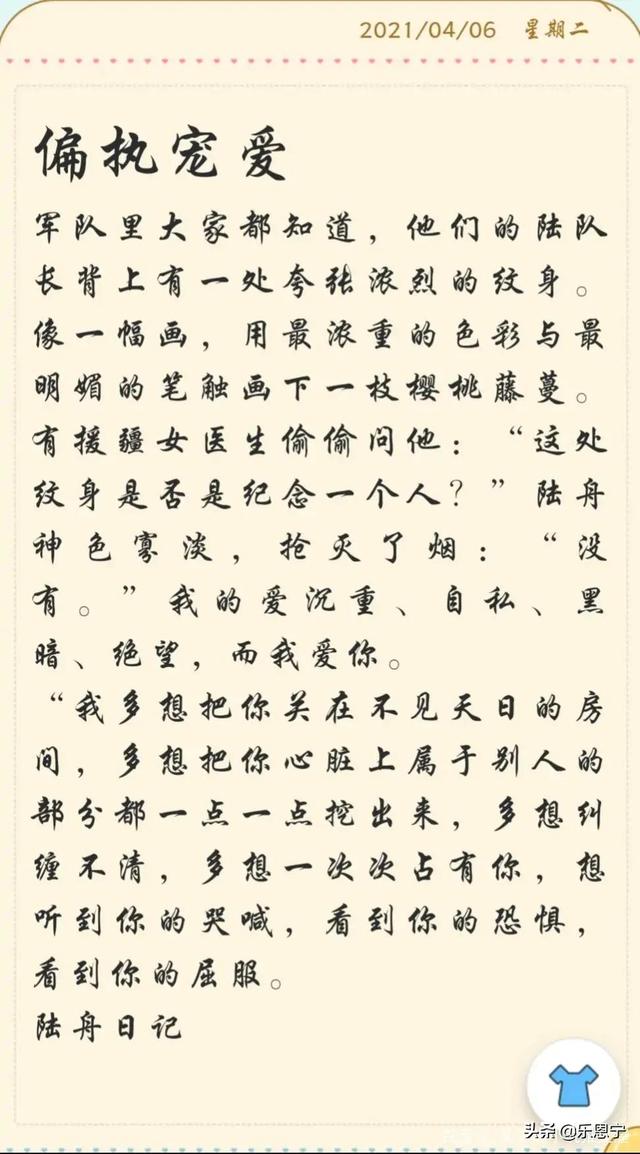 2021/04/06 星期二
偏执宠爱
军队里大家都知道，他们的陆队
长背上有一处夸张浓烈的纹身。
像一幅画，用最浓重的色彩与最
明媚的笔触画下一枝樱桃藤蔓。
有援疆女医生偷偷问他：“这处
纹身是否是纪念一个人？”陆舟
神色寡淡，抢灭了烟：“没
有。”我的爱沉重、自私、黑
暗、绝望，而我爱你。
“我多想把你关在不见天日的房
间，多想把你心脏上属于别人的
部分都一点一点挖出来，多想纠
缠不清，多想一次次占有你，想
听到你的哭喊，看到你的恐惧，
看到你的屈服。
陆舟日记
头条 @乐恩宁